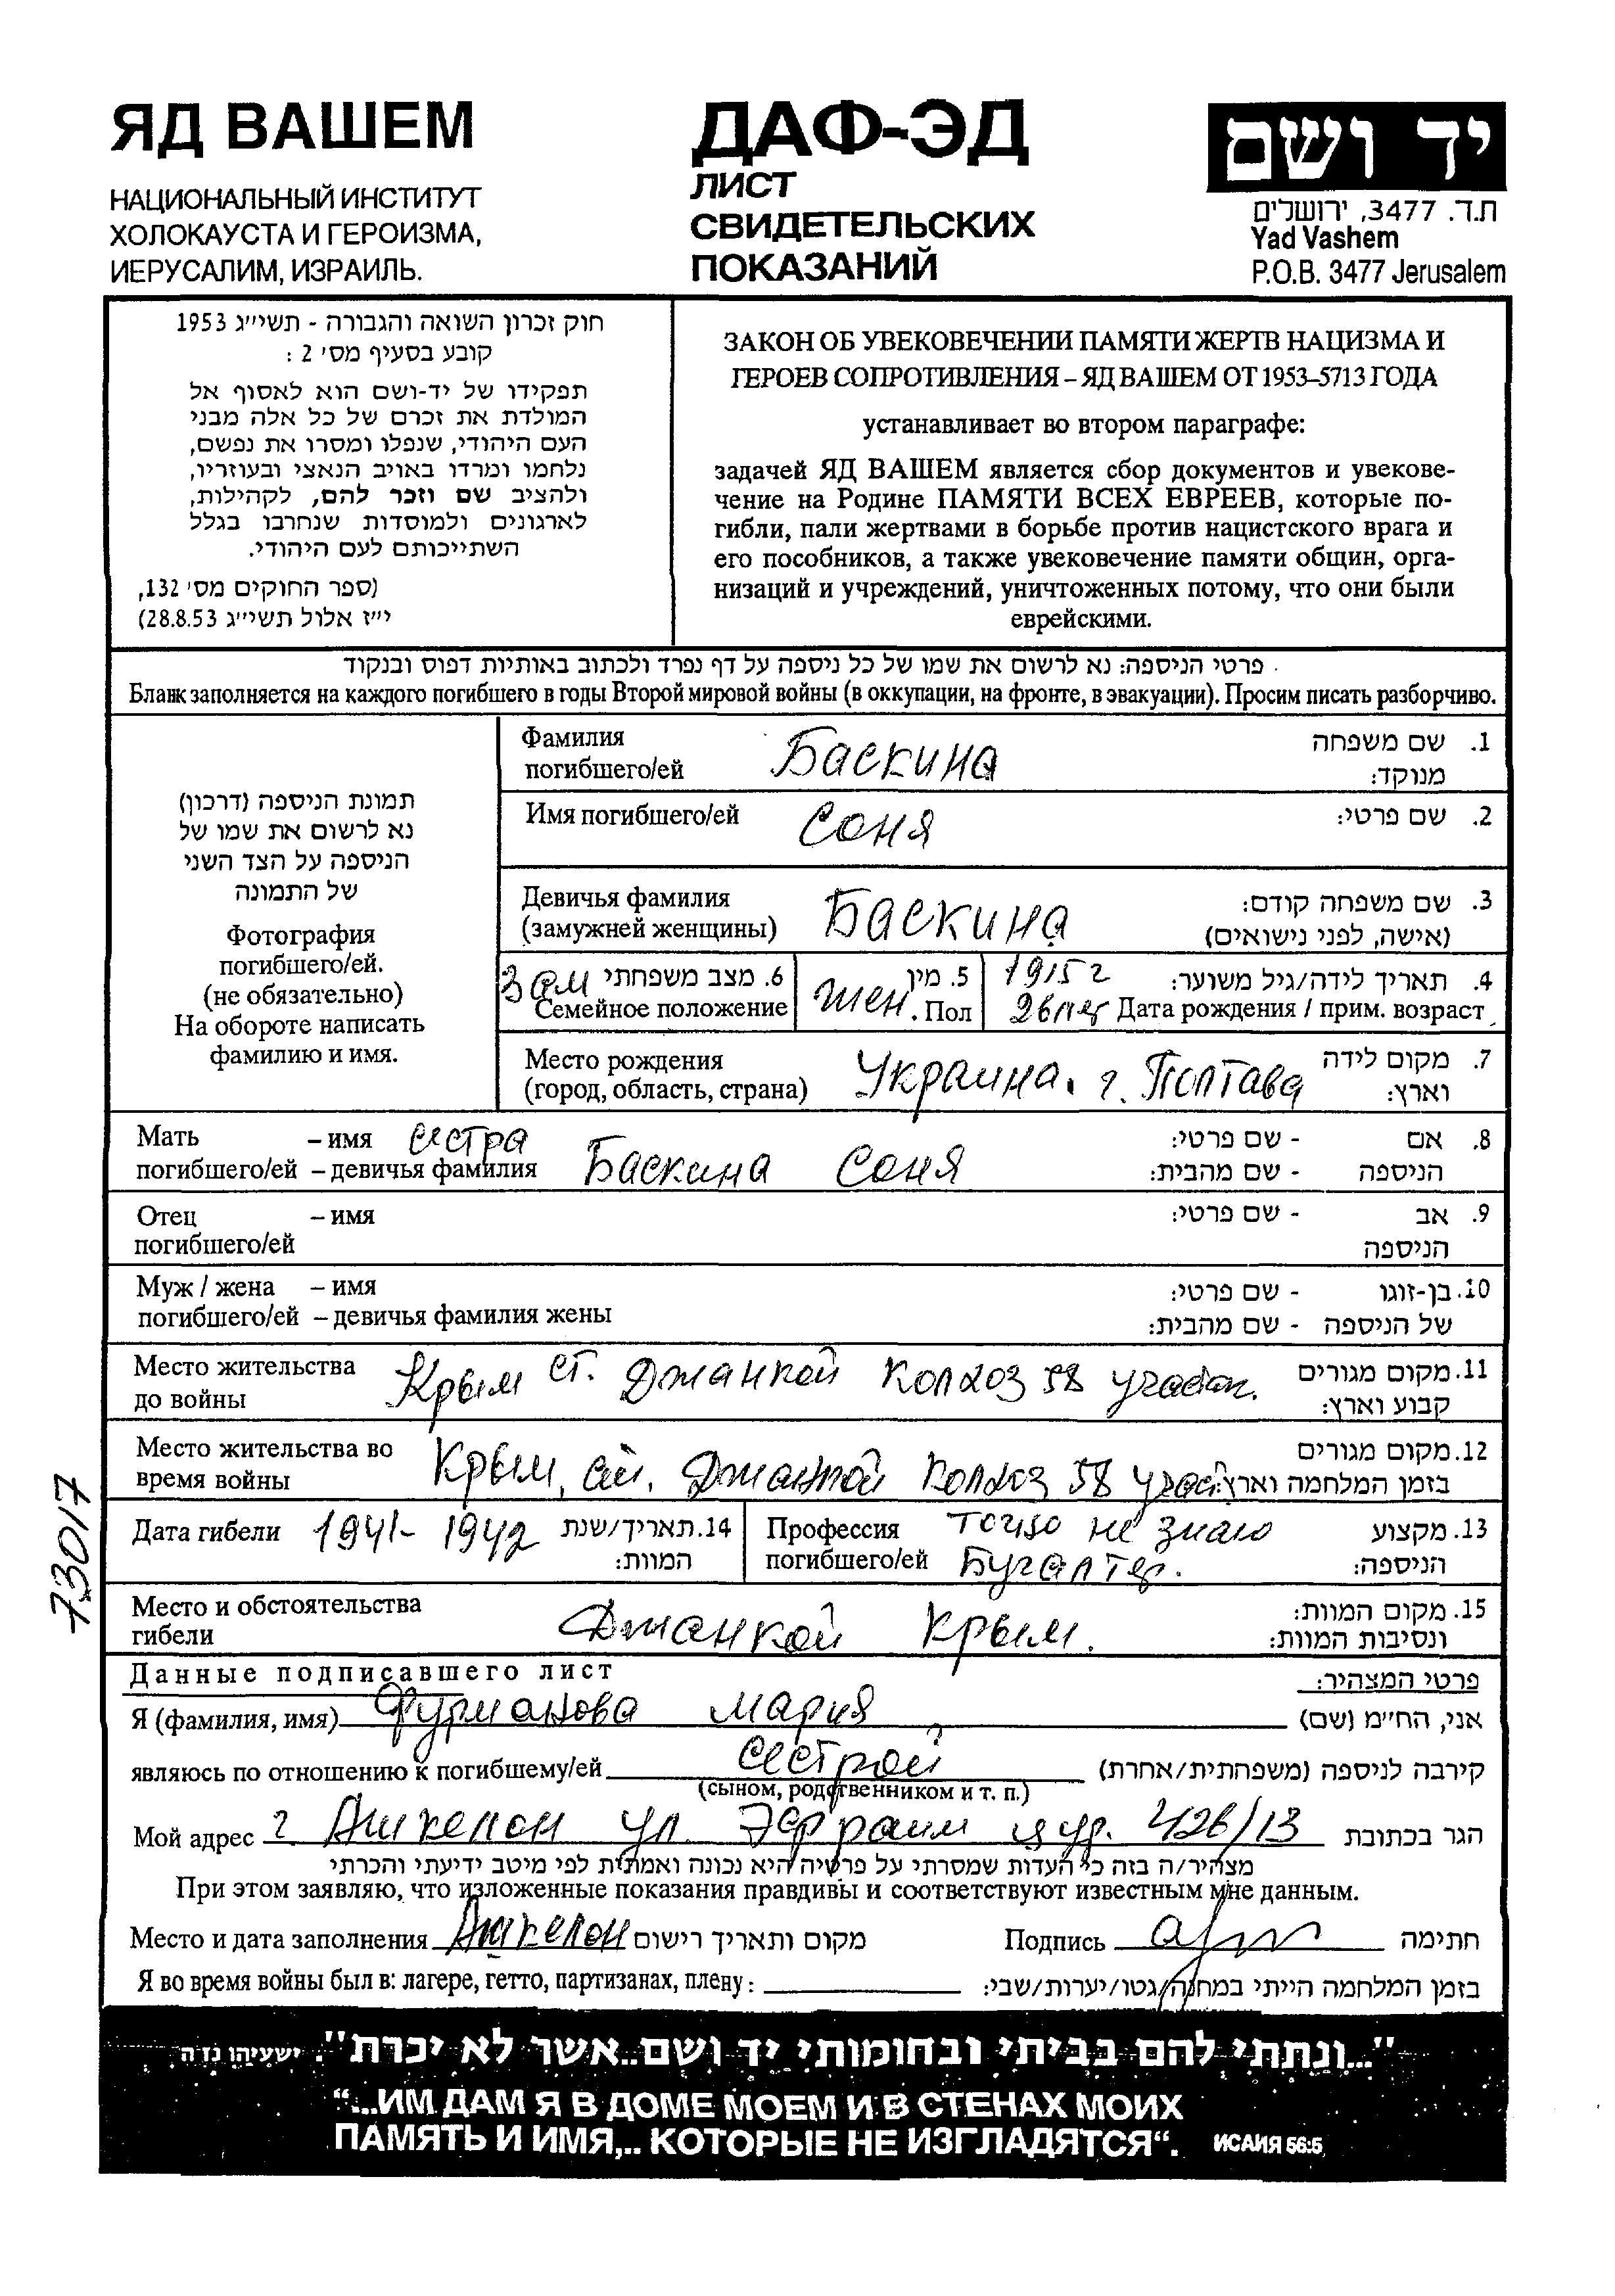 ЯД ВАШЕМ
НАЦИОНАЛЬНЫЙ ИНСТИТУТ
ХОЛОКАУСТА И ГЕРОИЗМА,
ИЕРУСАЛИМ, ИЗРАИЛЬ.
ДАФ-ЭД
ЛИСТ
СВИДЕТЕЛЬСКИХ
ПОКАЗАНИЙ
יד ושם
ת.ד. 3477, ירושלים
Yad Vashem
P.O.B. 3477 Jerusalem
חוק זכרון השואה והגבורה - תשי״ג 1953
קובע בסעיף מס׳ 2 :
תפקידו של יד-ושם הוא לאסוף אל
המולדת את זכרם של כל אלה מבני
העם היהודי, שנפלו ומסרו את נפשם,
נלחמו ומרדו באויב הנאצי ובעוזריו,
ולהציב שם וזכר להם, לקהילות,
לארגונים ולמוסדות שנחרבו בגלל
השתייכותם לעם היהודי.
(ספר החוקים מס׳ 132,
י״ז אלול תשי״ג 28.8.53)
ЗАКОН ОБ УВЕКОВЕЧЕНИИ ПАМЯТИ ЖЕРТВ НАЦИЗМА И
ГЕРОЕВ СОПРОТИВЛЕНИЯ – ЯД ВАШЕМ ОТ 1953–5713 ГОДА
устанавливает во втором параграфе:
задачей ЯД ВАШЕМ является сбор документов и увекове-
чение на Родине ПАМЯТИ ВСЕХ ЕВРЕЕВ, которые по-
гибли, пали жертвами в борьбе против нацистского врага и
его пособников, а также увековечение памяти общин, орга-
низаций и учреждений, уничтоженных потому, что они были
еврейскими.
פרטי הניספה: נא לרשום את שמו של כל ניספה על דף נפרד ולכתוב באותיות דפוס ובנקוד
Бланк заполняется на каждого погибшего в годы Второй мировой войны (в оккупации, на фронте, в эвакуации). Просим писать разборчиво.
תמונת הניספה (דרכון)
נא לרשום את שמו של
הניספה על הצד השני
של התמונה
Фотография
погибшего/ей.
(не обязательно)
На обороте написать
фамилию и имя.
Фамилия погибшего/ей Баскина 1. שם משפחה מנוקד:
Имя погибшего/ей Соня 2. שם פרטי:
Девичья фамилия Баскина 3. שם משפחה קודם:
(замужней женщины) (אישה, לפני נישואים)
Зам 6. מצב משפחתי 5. מין 1915 г 4. תאריך לידה/גיל משוער:
Семейное положение жен. Пол 26 лет Дата рождения / прим. возраст
Место рождения Украина. г. Полтава 7. מקום לידה
(город, область, страна) וארץ:
Мать – имя сестра - שם פרטי: 8. אם
погибшего/ей – девичья фамилия Баскина Соня - שם מהבית: הניספה
Отец – имя - שם פרטי: 9. אב
погибшего/ей הניספה
Муж / жена – имя - שם פרטי: 10. בן-זוגו
погибшего/ей – девичья фамилия жены - שם מהבית: של הניספה
Место жительства Крым ст. Джанкой Колхоз 58 11. מקום מגורים
до войны קבוע וארץ:
Место жительства во Крым, Джанкой Колхоз 58 12. מקום מגורים
время войны בזמן המלחמה וארץ:
Дата гибели 1941-1942 14. תאריך/שנת המוות:
Профессия точно не знаю 13. מקצוע
погибшего/ей Бугалтер. הניספה:
Место и обстоятельства Джанкой Крым. 15. מקום המוות:
гибели ונסיבות המוות:
Данные подписавшего лист פרטי המצהיר:
Я (фамилия, имя) Фурманова Мария אני, הח״מ (שם)
являюсь по отношению к погибшему/ей сестрой קירבה לניספה (משפחתית/אחרת)
(сыном, родственником и т. п.)
Мой адрес г. Ашкелон ул Эфраим цур. 426/13 הגר בכתובת
מצהיר/ה בזה כי העדות שמסרתי על פרטיה היא נכונה ואמתית לפי מיטב ידיעתי והכרתי
При этом заявляю, что изложенные показания правдивы и соответствуют известным мне данным.
Место и дата заполнения Ашкелон מקום ותאריך רישום Подпись חתימה
Я во время войны был в: лагере, гетто, партизанах, плену: בזמן המלחמה הייתי במחנה/גטו/יערות/שבי:
73017
"...ונתתי להם בביתי ובחומותי יד ושם..אשר לא יכרת". ישעיהו נז ה
“...ИМ ДАМ Я В ДОМЕ МОЕМ И В СТЕНАХ МОИХ
ПАМЯТЬ И ИМЯ,.. КОТОРЫЕ НЕ ИЗГЛАДЯТСЯ“. ИСАИЯ 56:5